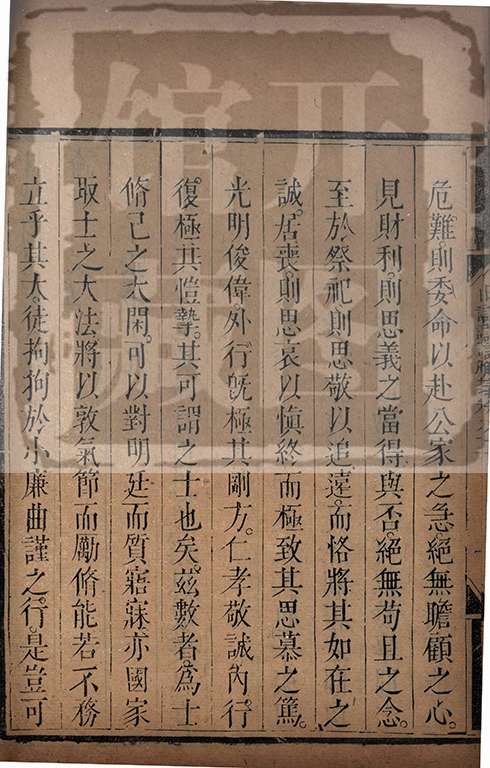 危難。則委命以赴公家之急。絕無瞻顧之心。
見財利。則思義之當得與否。絕無苟且之念。
至於祭祀則思敬以追遠。而恪將其如在之
誠。居喪。則思哀以慎終。而極致其思慕之篤。
光明俊偉外。行旣極其剛方。仁孝敬誠內。行
復極其愷摯。其可謂之士也矣。茲數者。為士
脩己之大閑。可以對明廷而質寤寐亦國家
取士之大法將以敦氣節而勵脩能若不務
立乎其大。徒拘拘於小廉曲謹之。行是豈可